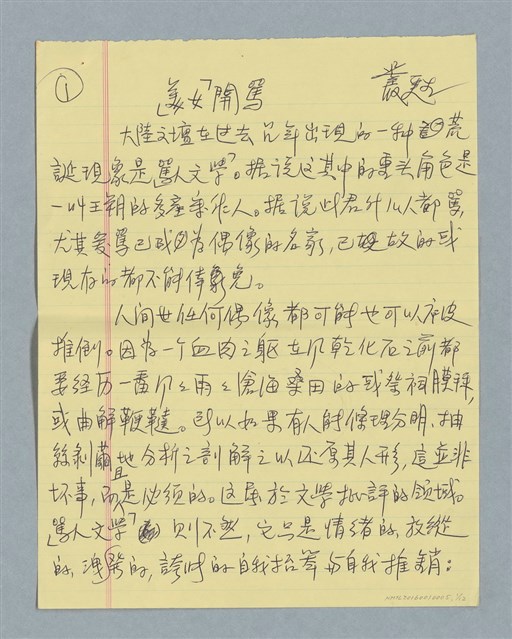 ①
美女「開罵 叢甦
大陸文壇在过去几年出現的一种荒
誕現象是罵人文學。据说这其中的重头角色是
一叫王朔的多產年作人。据说此君什么人都罵,
尤其爱罵已成为偶像的名家,已故的或
現存的都不能倖免。
人间世任何偶像都可能也可以被
推倒。因为一个血肉之軀在几乾化石之前都
要经历一番风风雨雨滄海桑田的或崇祠膜拜,
或曲解鞭韃。所以如果有人能條理分明、抽
絲剝繭地分析之剖解之以还原其人形,這並非
坏事,而是必须的。这屬於文學批評的领域。
罵人文學」则不然,它只是情绪的、放縱
的、洩發的,誇时的自我招募与自我推銷: